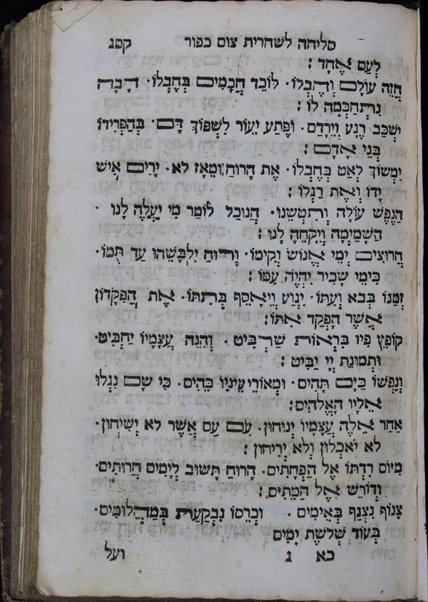 סליחה לשחרית צום כפור קסג
לְעַם אֶחָד׃
חֲזֵה עוֹלָם וְהֶבְלוֹ. לוֹכֵד חֲכָמִים בְּחֶבְלוֹ. הָבָה
נִתְחַכְּמָה לוֹ׃
יִשְׁכַּב רֶגַע וְיֵרָדַם. וּפֶתַע יֵעוֹר לִשְׁפּוֹךְ דָּם. בְּהַפְרִידוֹ
בְּנֵי אָדָם׃
יִמְשׁוֹךְ לְאַט בְּחֶבְלוֹ. אֶת הָרוּחַ וּמֵאָז לֹא. יָרִים אִישׁ
יָדוֹ וְאֶת רַגְלוֹ׃
הַנֶּפֶשׁ עוֹלָה וְתִטְּשֵׁנוּ. הֲנוּכַל לוֹמַר מִי יַעֲלֶה לָנוּ
הַשָּׁמַיְמָה וְיִקָּחֶהָ לָנוּ׃
חֲרוּצִים יְמֵי אֱנוֹשׁ וְקִיּוּמוֹ. וְרוּחַ יִלְבָּשֵׁהוּ עַד תֻּמּוֹ.
כִּימֵי שָׂכִיר יִהְיֶה עִמּוֹ׃
זְמַנּוֹ בְּבֹא וְעִתּוֹ. יִגְוַע וְיֵאָסֵף בְּרִתּוֹ. אֶת הַפִּקָּדוֹן
אֲשֶׁר הָפְקַד אִתּוֹ׃
קוֹפֵץ פִּיו בִּרְאוֹת שַׁרְבִיט. וְהִנֵּה עֲצָמָיו יַחְבִּיט.
וּתְמוּנַת יְיָ יַבִּיט׃
וְנַפְשׁוֹ כַּיָּם תֶּהִים. וּמְאוֹרֵי עֵינָיו כֵּהִים. כִּי שָׁם נִגְלוּ
אֵלָיו הָאֱלֹהִים׃
אַחַר אֵלֶּה עֲצָמָיו יָנוּחוּן. עִם עַם אֲשֶׁר לֹא יְשִׂיחוּן.
לֹא יֹאכְלוּן וְלֹא יְרִיחוּן׃
מִיּוֹם רִדְתּוֹ אֶל הַפְּחָתִים. הָרוּחַ תָּשׁוּב לְיָמִים חֲרוּתִים.
וְדוֹרֵשׁ אֶל הַמֵּתִים׃
צָנוֹף נִצְנַף בְּאֵימִים. וּכְרֵסוֹ נִבְקַעַת בְּמַהֲלוּמִים.
בְּעוֹד שְׁלֹשֶׁת יָמִים
כא ג ועל